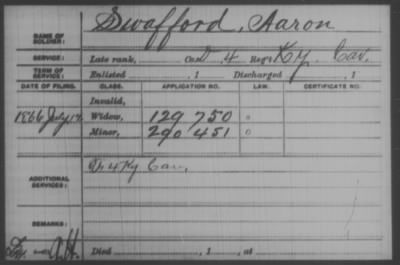 Swafford, Aaron
NAME OF SOLDIER:
SERVICE: Late rank, Co. D 4 Reg't Ky. Cav.
TERM OF SERVICE: Enlisted , 1 Discharged , 1
DATE OF FILING. CLASS. APPLICATION NO. LAW. CERTIFICATE NO.
Invalid,
1866 July Widow, 129 750
Minor, 290 451
D. 4 Ky Cav.
ADDITIONAL SERVICES:
REMARKS:
Died , 1 , at